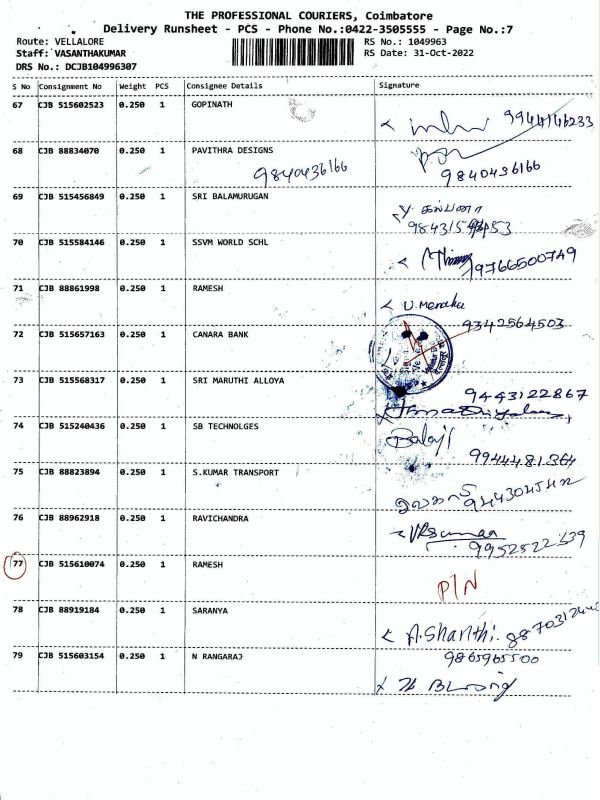 THE PROFESSIONAL COURIERS, Coimbatore
Delivery Runsheet - PCS - Phone No.:0422-3505555 - Page No.:7
Route: VELLALORE RS No.: 1049963
Staff: VASANTHAKUMAR RS Date: 31-Oct-2022
DRS No.: DCJB104996307
S No Consignment No Weight PCS Consignee Details Signature
67 CJB 515602523 0.250 1 GOPINATH
9944146233
68 CJB 88834070 0.250 1 PAVITHRA DESIGNS
9840436166 9840436166
69 CJB 515456849 0.250 1 SRI BALAMURUGAN
Y. கல்பனா
70 CJB 515584146 0.250 1 SSVM WORLD SCHL
9766500749
71 CJB 88861998 0.250 1 RAMESH
U. Menaka
9342564503
72 CJB 515657163 0.250 1 CANARA BANK
73 CJB 515568317 0.250 1 SRI MARUTHI ALLOYA
9443122867
74 CJB 515240436 0.250 1 SB TECHNOLGES
Balaji
9944481364
75 CJB 88823894 0.250 1 S.KUMAR TRANSPORT
76 CJB 88962918 0.250 1 RAVICHANDRA
9952522639
77 CJB 515610074 0.250 1 RAMESH
P/N
78 CJB 88919184 0.250 1 SARANYA
A. Shanthi.
79 CJB 515603154 0.250 1 N RANGARAJ
9865965500